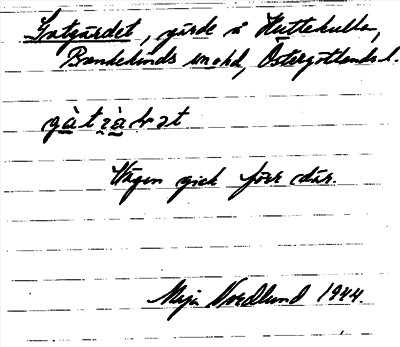 Gatgärdet, gärde å Huttekulla,
Bankekinds snhd, Östergötlands l.
gàt ɀà ḍ ət
Vägen gick förr där.
Maja Nordlund 1944.